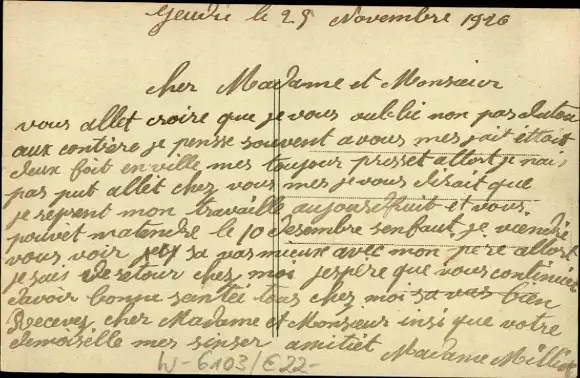 le 29 Novembre 1926
cher Madame et Monsieur
vous allet croire que je vous oublie non pas dutou
aux contière je pensse souvent a vous mes jait éttait
deux foit en ville mes toujour presset allort je nais
pas put allét chez vous mes je vous disait que
je reprent mon travaille aujourdhuit et vous
pouvet matendre le 10 desembre senfaut je viendré
vous voir sa pas mieux avec mon père allort
je suis de retour chez moi jespère que vous continuér
davoir bonne santéé tous chez moi sa vas bien
Recevez cher Madame et Monsieur insi que votre
demoiselle mes sinser amitiét
Madame
W-6103/E22-